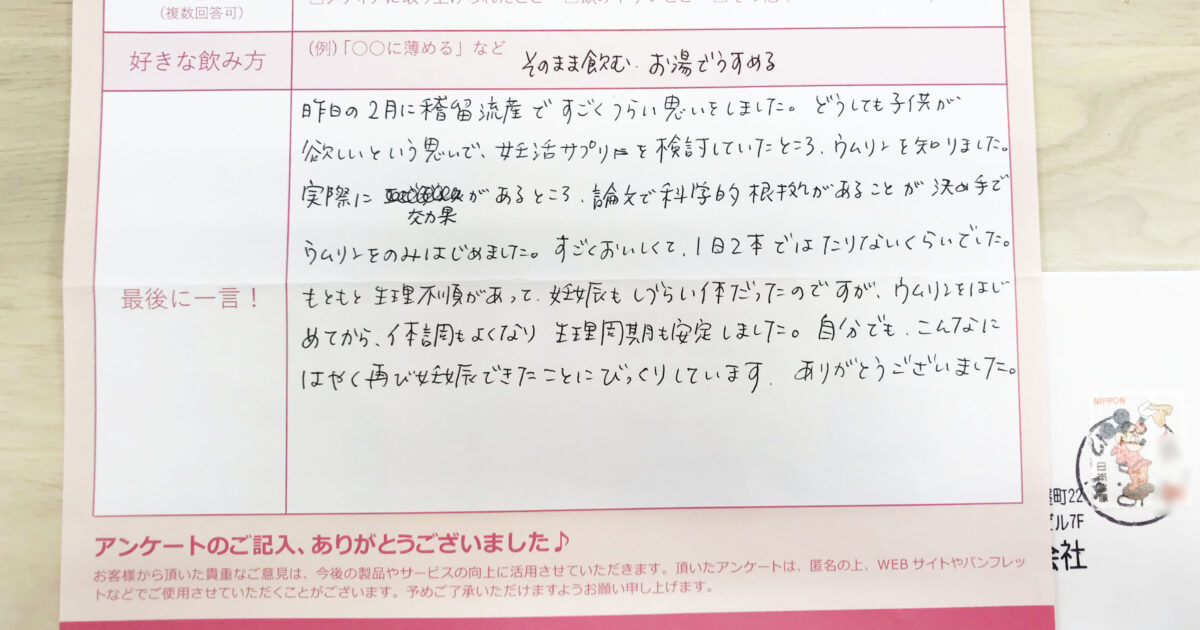 (複数回答可)
好きな飲み方
(例)「〇〇に薄める」など
そのまま飲む. お湯でうすめる
昨日の2月に稽留流産で すごくつらい思いをしました。どうしても子供が
欲しいという思いで、妊活サプリを検討していたところ、ウムリンを知りました。
実際に 効果があるところ、論文で科学的根拠があることが決め手で
ウムリンをのみはじめました。すごくおいしくて、1日2本ではたりないくらいでした。
最後に一言!
もともと生理不順があって、妊娠もしづらい体だったのですが、ウムリンをはじ
めてから、体調もよくなり 生理周期も安定しました。自分でも、こんなに
はやく再び妊娠できたことにびっくりしています. ありがとうございました。
アンケートのご記入、ありがとうございました♪
お客様から頂いた貴重なご意見は、今後の製品やサービスの向上に活用させていただきます。頂いたアンケートは、匿名の上、WEBサイトやパンフレッ
トなどでご使用させていただくことがございます。予めご了承いただけますようお願い申し上げます。
NIPPON
町22
ビル7F
会社